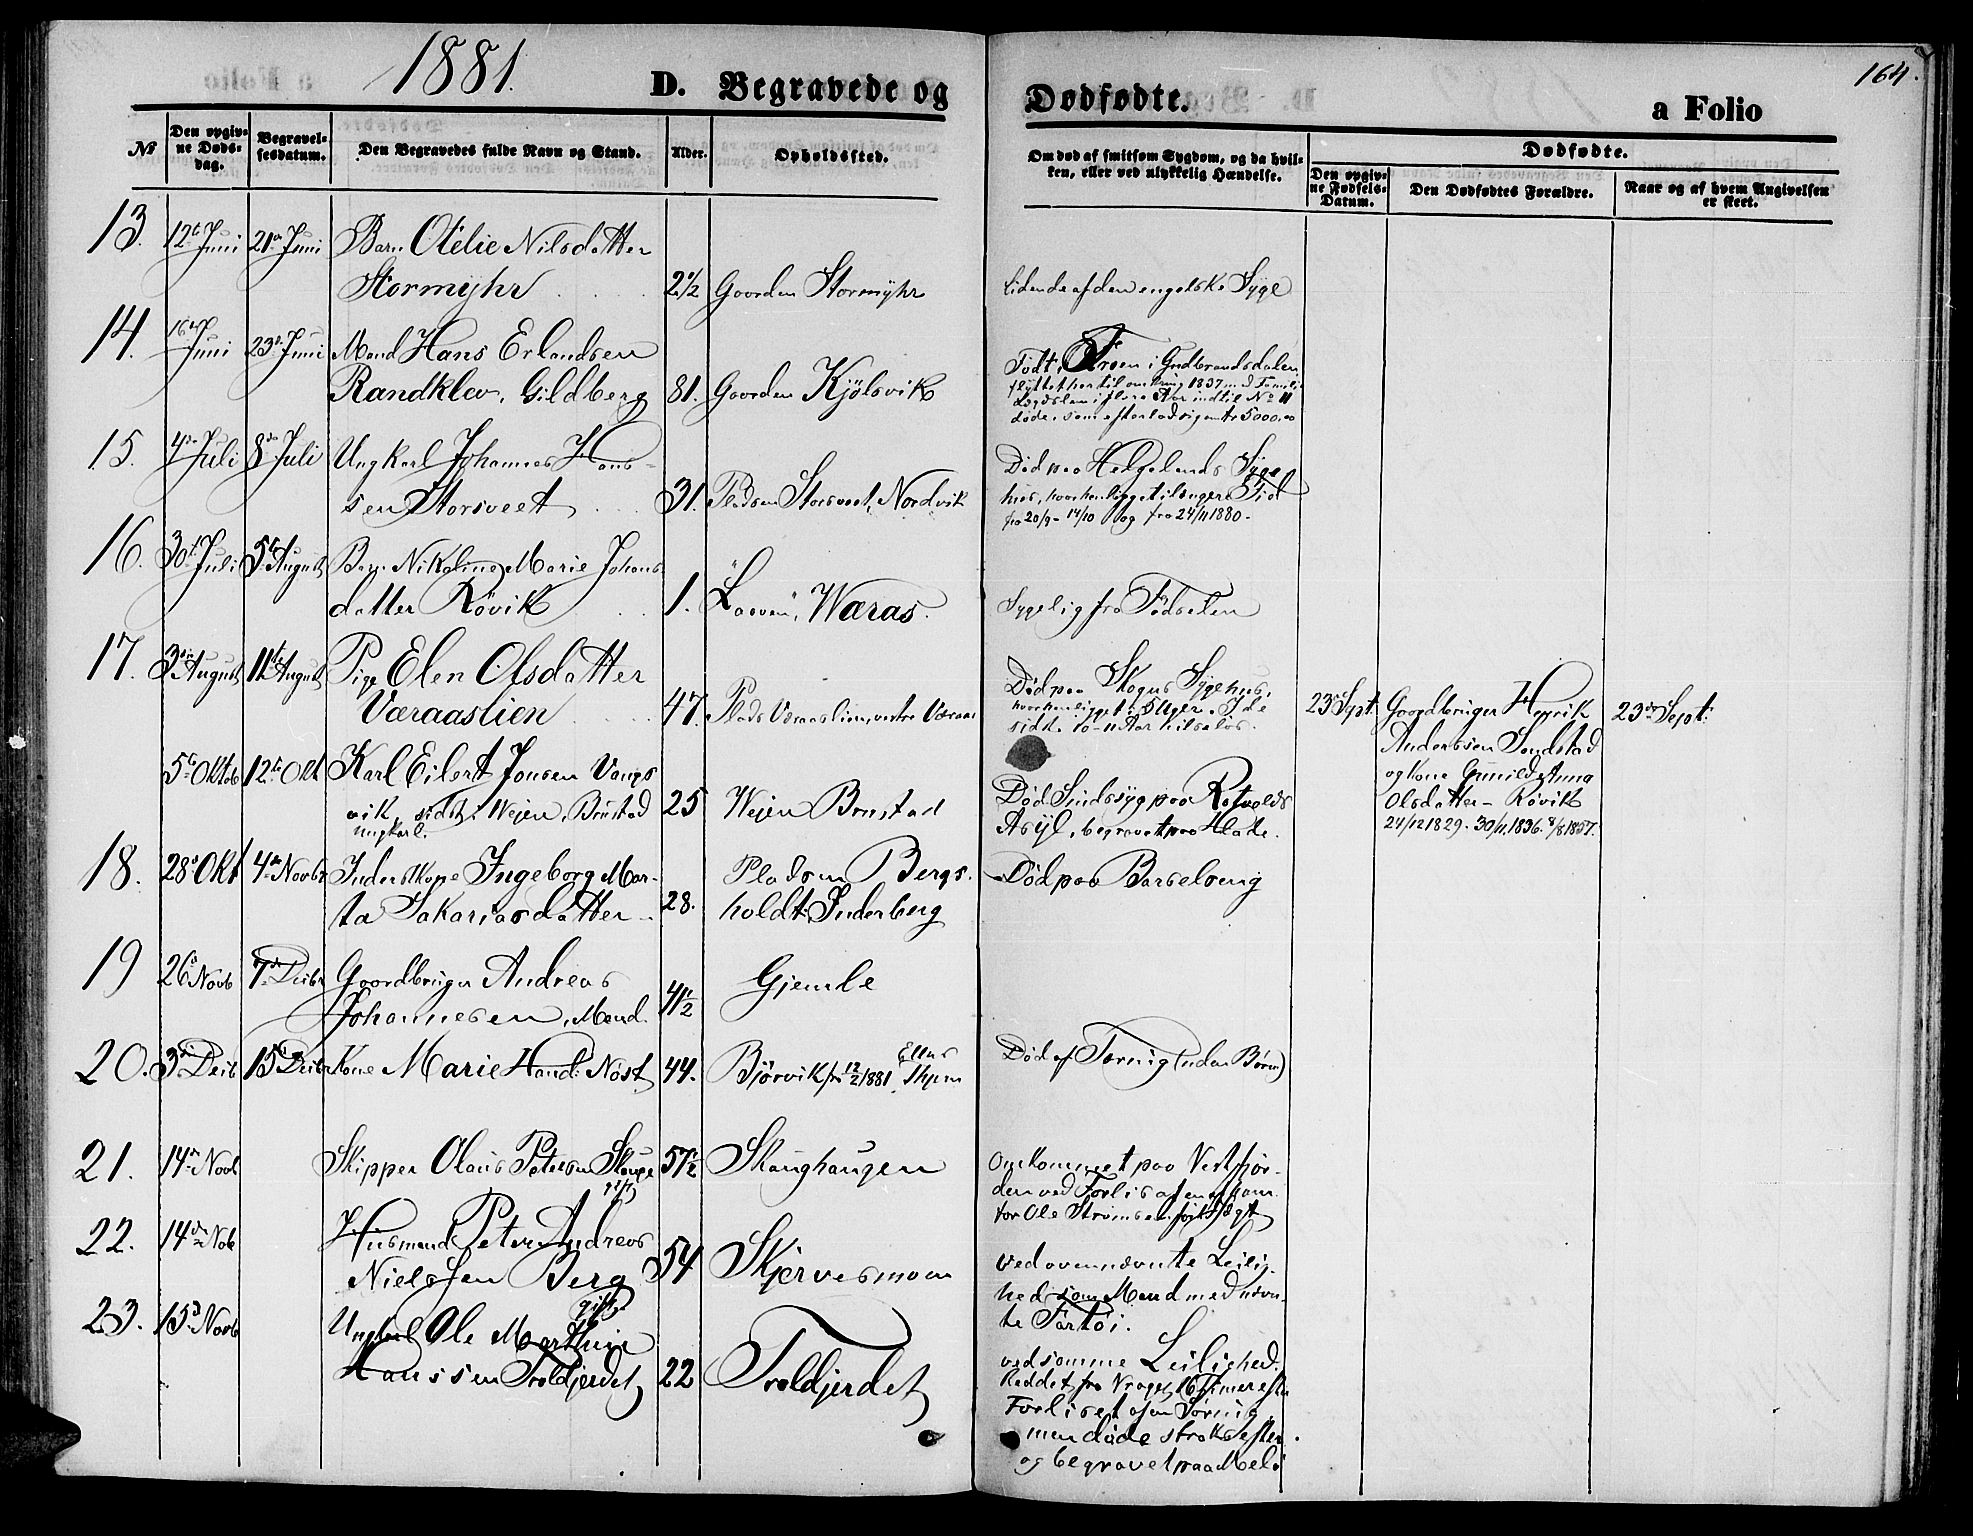 1881.
D. Begravede og
Dødfødte.
a Folio
164.
No
Den opgiv-
ne Døds-
dag.
Begravel-
sesdatum.
Den Begravedes fulde Navn og Stand.
Alder.
Opholdssted.
Om død af smitsom Sygdom, og da hvil-
ken, eller ved ulykkelig Hændelse.
Dødfødte.
Den opgiv-
ne Fødsels-
Datum.
Den Dødfødtes Forældre.
Naar og af hvem Angivelsen
er skeet.
13. 12te Juni 21de Juni Barn Otelie Nilsdatter
Stormyhr 2 1/2 Gaarden Stormyhr lidende af den engelske Syge
14. 16de Juni 23de Juni Mand Hans Erlandsen
Randklev, Gildberg 81. Gaarden Kjölsvik
Født i Froen i Gudbrandsdalen
flyttet hertil omkring 1837 med Familie
Lægdslem i flere Aar indtil No 11
døde, som efterlod sig omtr 5000,00
15. 4de Juli 8de Juli Ungkarl Johannes Hans-
sen Storsveet 31. Pladsen Storsveet, Nordvik
Død paa Helgelands Syge
hus, hvor han ligget i længere Tid
fra 20/9 - 14/10 og fra 24/11 1880.
16. 30te Juli 5te August Barn Nikoline Marie Johans
datter Røvik 1. Væras. Sygelig fra Fødselen
17. 3die August 11te August Pige Elen Olsdatter
Væraaslien 47. Plads Væraaslien, vestre Væraas
Død paa Skogns Sygehus,
hvor hun ligget i Uger.
sidst. 10-11 Aar
23de Sept. Gaardbruger Henrik
Anderssen Sendstad
og Kone Gunild Anna
Olsdatter - Røvik
24/12 1829. 30/11 1836. 8/8 1857.
23de Sept:
5te Oktob 12te Okt Karl Eilert Jonsen Vangs
vik, sidst i Wejen, Brustad
Ungkarl.
25 Wejen Brustad
Død Sindssyg paa Rotvolds
Asyl, begravet paa Hlade.
18. 28de Okt 4de Novbr Inderstkone Ingeborg Mar-
ta Sakariasdatter 28. Pladsen Bergs.
holdt, Inderberg
Død paa Barselseng
19 26de Novb 7de Decbr Gaardbruger Andreas
Johannesen, Mand. 41 1/2 Gjemle
20. 3de Decb 15de Decbr Kone Marie Hansd: Nøst 44. Bjørvik fra 12/2 1881, Skjem
Død af Tærring (uden Børn)
21. 14de Novb Skipper Olaus Petersen Skauge
gift
57 1/2 Skanghaugen
Omkommet paa Vestfjor-
den ved Forlis af en af
Ole Strømsens Jægt
22. 14de Novb Husmand Peter Andreas
Nielssen Berg
gift
54 Skjervesmoen
ved ovennævnte Leilig-
hed som Mand med nævn-
te Fartøi.
23. 15de Novb Ungkarl Ole Marthin
Hanssen Troldjerdet 22 Troldjerdet
ved samme Leilighed.
Reddet fra Vraget 16 Timer efter
Forliset af en Søring,
men døde straks efter.
og begravet paa Melö